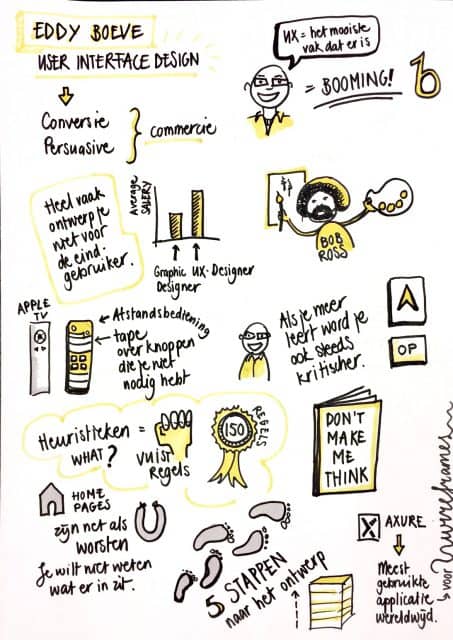 EDDY BOEVE
USER INTERFACE DESIGN
UX = het mooiste
vak dat er is
= BOOMING!
Conversie
Persuasive
commercie
Heel vaak
ontwerp je
niet voor
de eind-
gebruiker.
Average
SALERY
Graphic
Designer
UX-Designer
BOB
ROSS
APPLE
TV
Afstandsbediening
tape
over knoppen
die je niet
nodig hebt
Als je meer
leert word je
ook steeds
kritischer.
A
OP
Heuristieken =
WHAT?
vuist
Regels
150
REGELS
DON'T
MAKE
ME
THINK
HOME
PAGES
zijn net als
worsten
Je wilt niet weten
wat er in zit.
5 STAPPEN
naar het ontwerp
X
AXURE
Meest
gebruikte
applicatie
wereldwijd.
voor wireframes